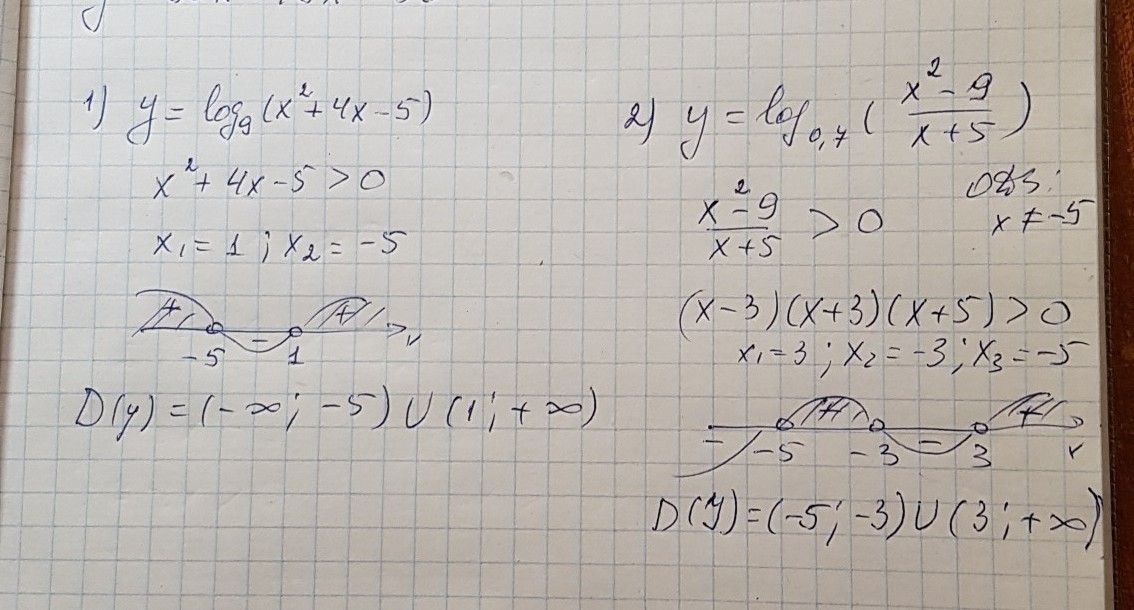 1) y = log₉(x² + 4x - 5)
x² + 4x - 5 > 0
x₁ = 1 ; x₂ = -5
+ - + x
-5 1
D(y) = (-∞; -5) U (1; +∞)
2) y = log₀,₇ ( (x² - 9)/(x + 5) )
(x² - 9)/(x + 5) > 0
ОДЗ:
x ≠ -5
(x-3)(x+3)(x+5) > 0
x₁ = 3 ; x₂ = -3 ; x₃ = -5
- + - + x
-5 -3 3
D(y) = (-5; -3) U (3; +∞)